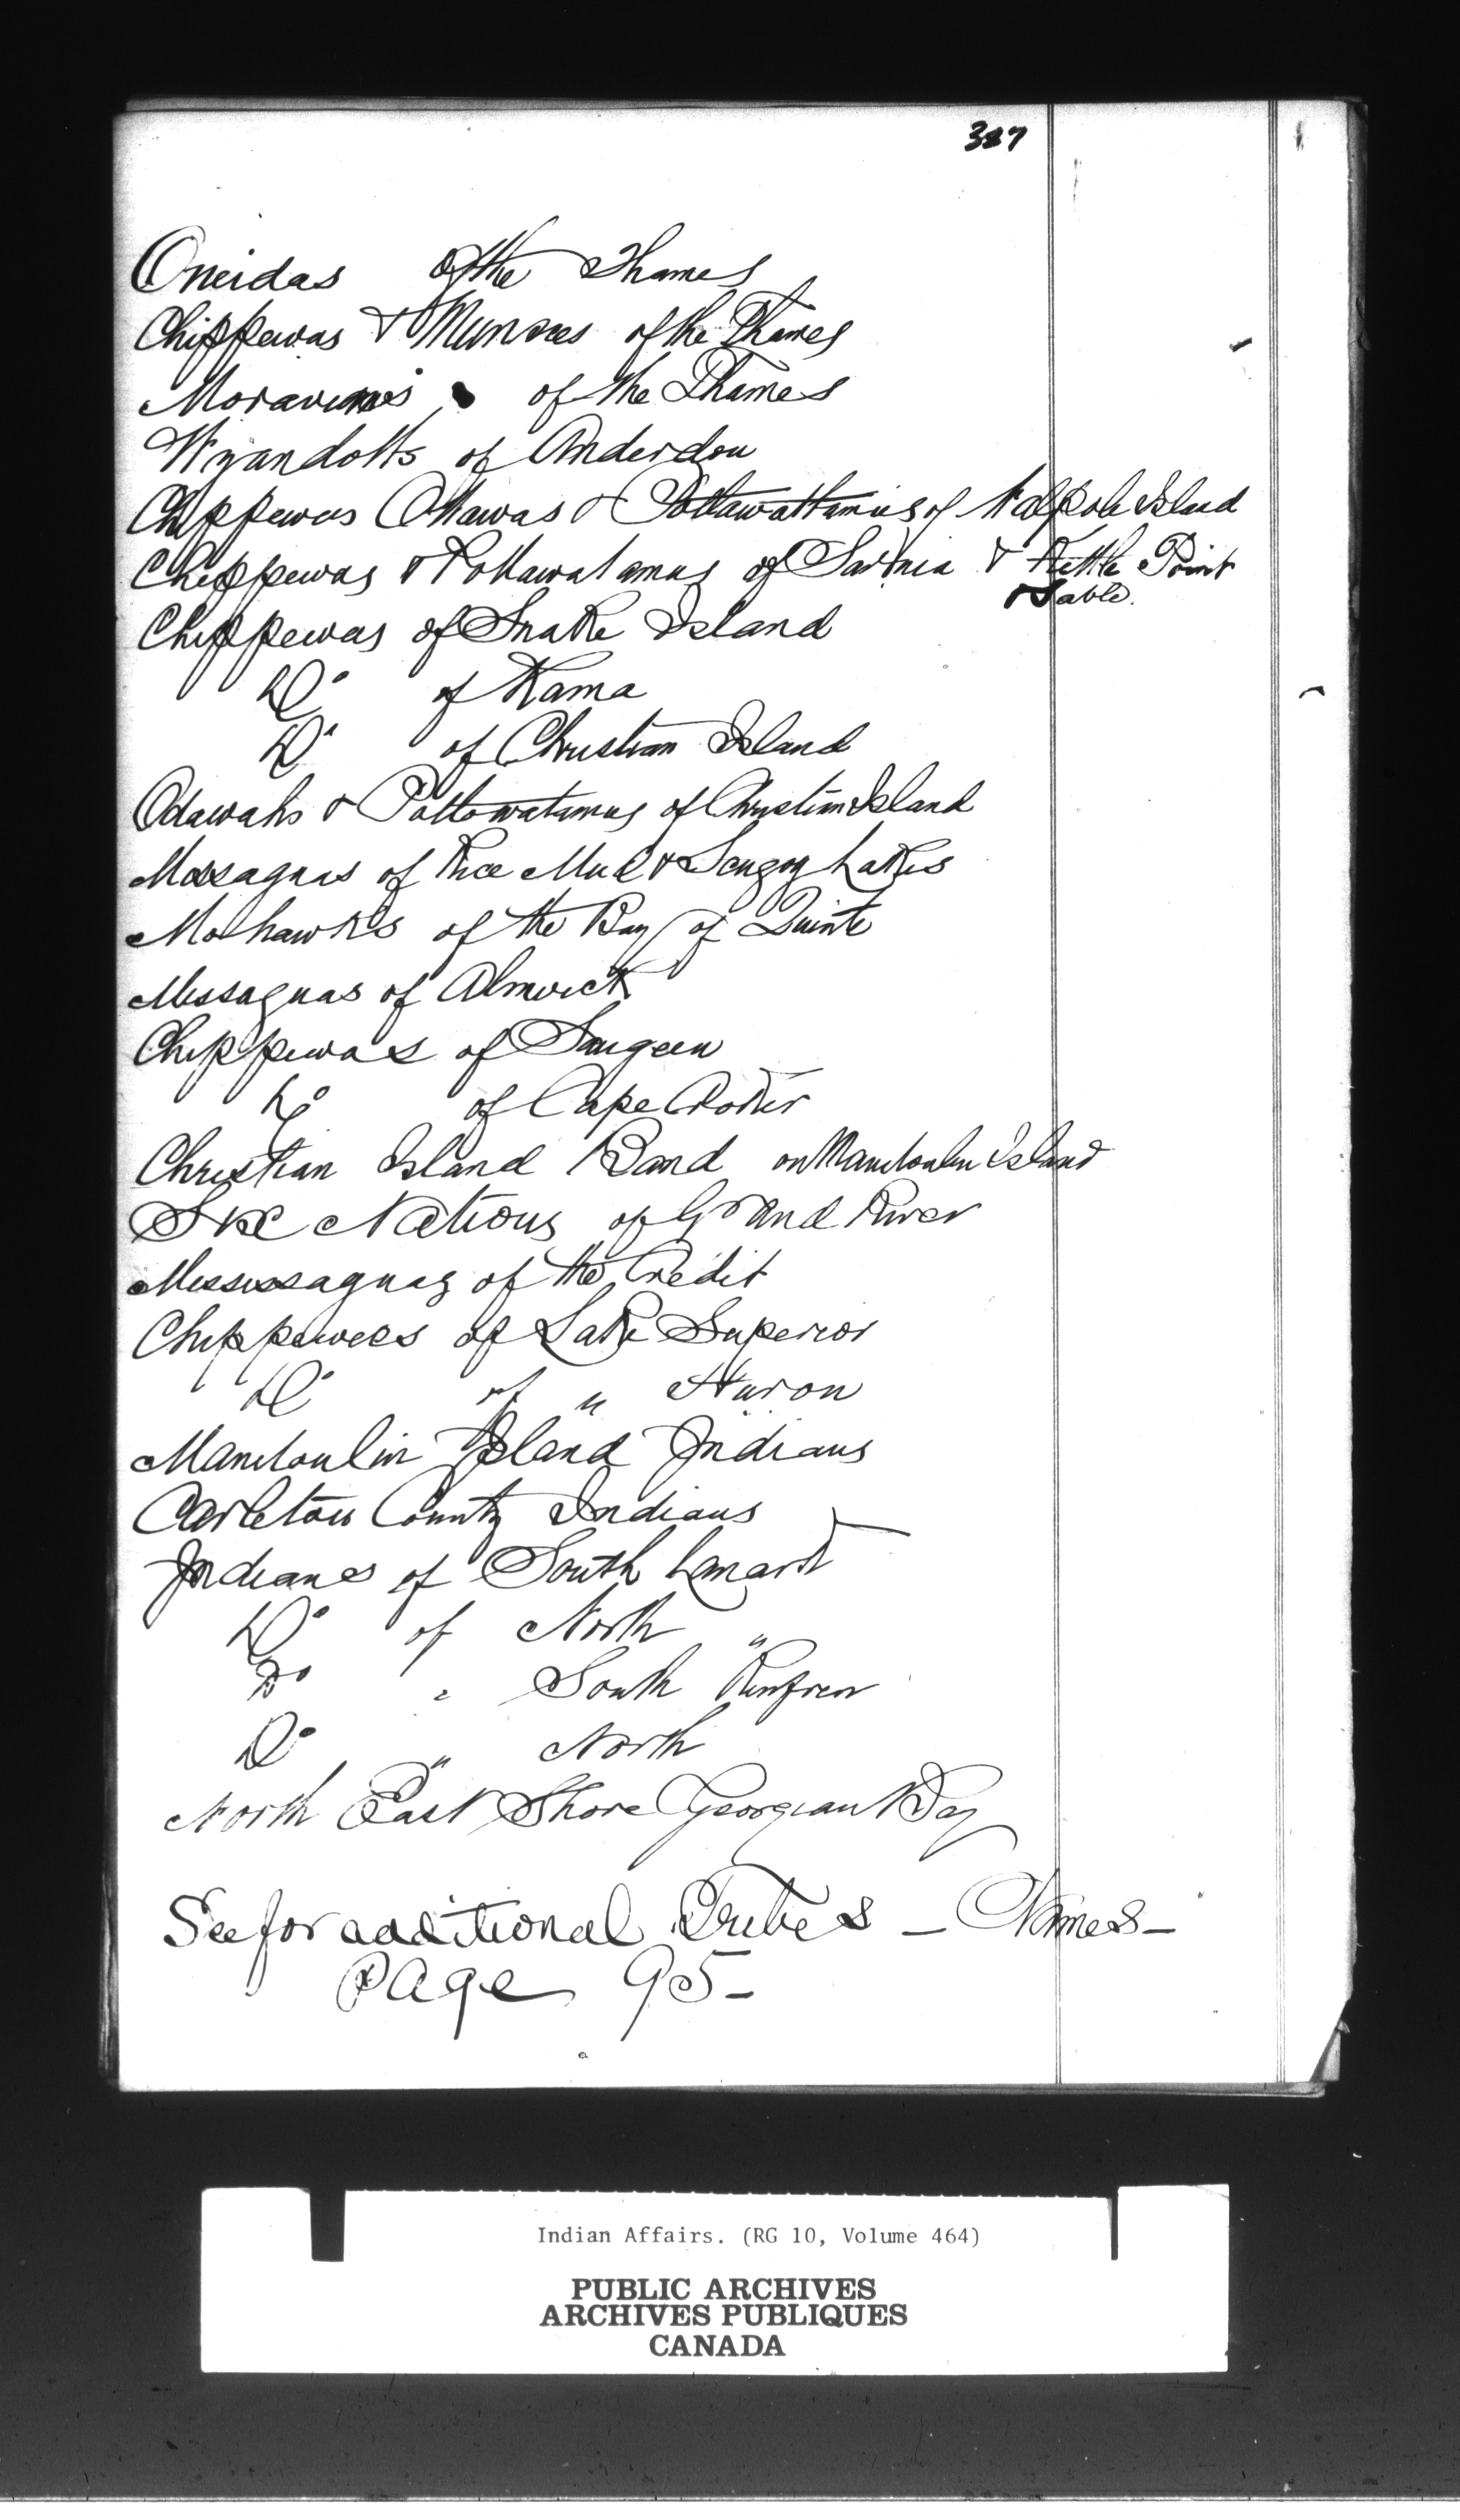 327
Oneidas of the Thames
Chippewas & Munsees of the Thames
Moravians of the Thames
Wyandotts of Anderdon
Chippewas Ottawas & Pottawattamies of Walpole Island
Chippewas & Pottawatamus of Sarnia & Kettle Point
& Sable.
Chippewas of Snake Island
Do of Rama
Do of Christian Island
Odawahs & Pottowatamus of Christian Island
Missaguas of Rice Mud & Scugog Lakes
Mohawks of the Bay of Quinte
Missaguas of Alnwick
Chippewas of Saugeen
Do of Cape Croker
Christian Island Band on Manitoulin Island
Six Nations of Grand River
Mississaguas of the Credit
Chippewas of Lake Superior
Do of " Huron
Manitoulin Island Indians
Carleton County Indians
Indians of South Lanark
Do of North "
Do " South Renfrew
Do " North
North East Shore Georgian Bay
See for additional Tribes – Names –
Page 95 –
Indian Affairs. (RG 10, Volume 464)
PUBLIC ARCHIVES
ARCHIVES PUBLIQUES
CANADA